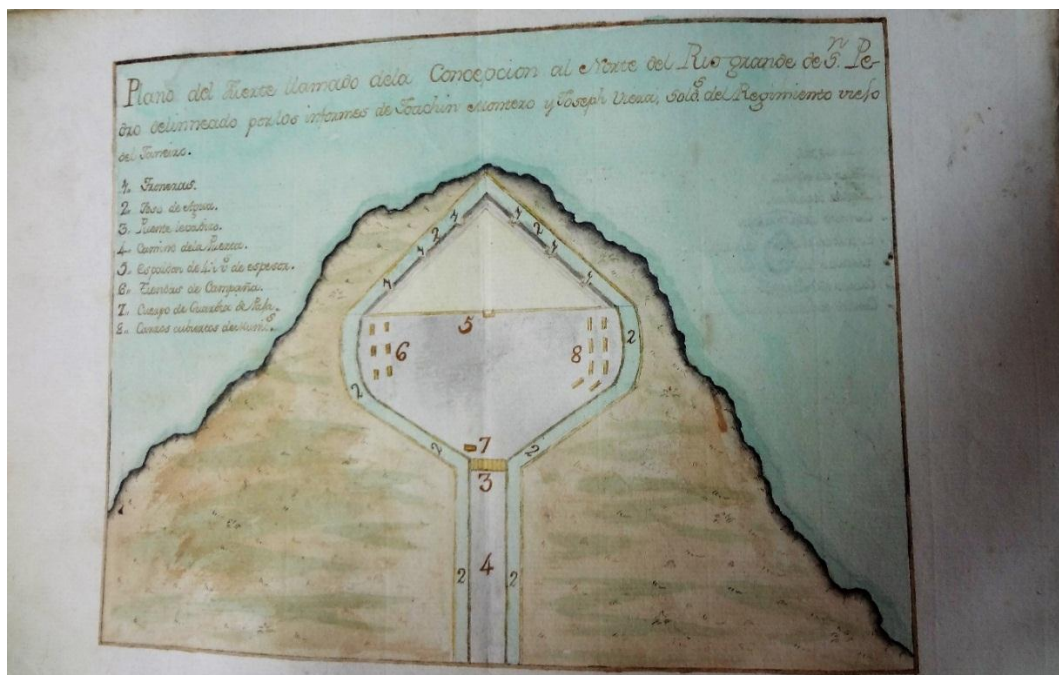 Plano del Fuerte llamado dela Concepcion al Norte del Rio grande de S.n Pe-
dro delinneado por los informes de Joachin Montero y Joseph Viera, Sold.s del Regimiento viejo
del Janeiro.
1. Troneras.
2. Foso de Agua.
3. Puente levadizo.
4. Camino dela Puerta.
5. Espaldon de 4 v.s de espesor.
6. Tiendas de Campaña.
7. Cuerpo de Guardia de Paja.
8. Carros cubiertos de
1
2
1
1
2
1
1
1
5
2
6
8
2
2
7
2
3
2
4
2